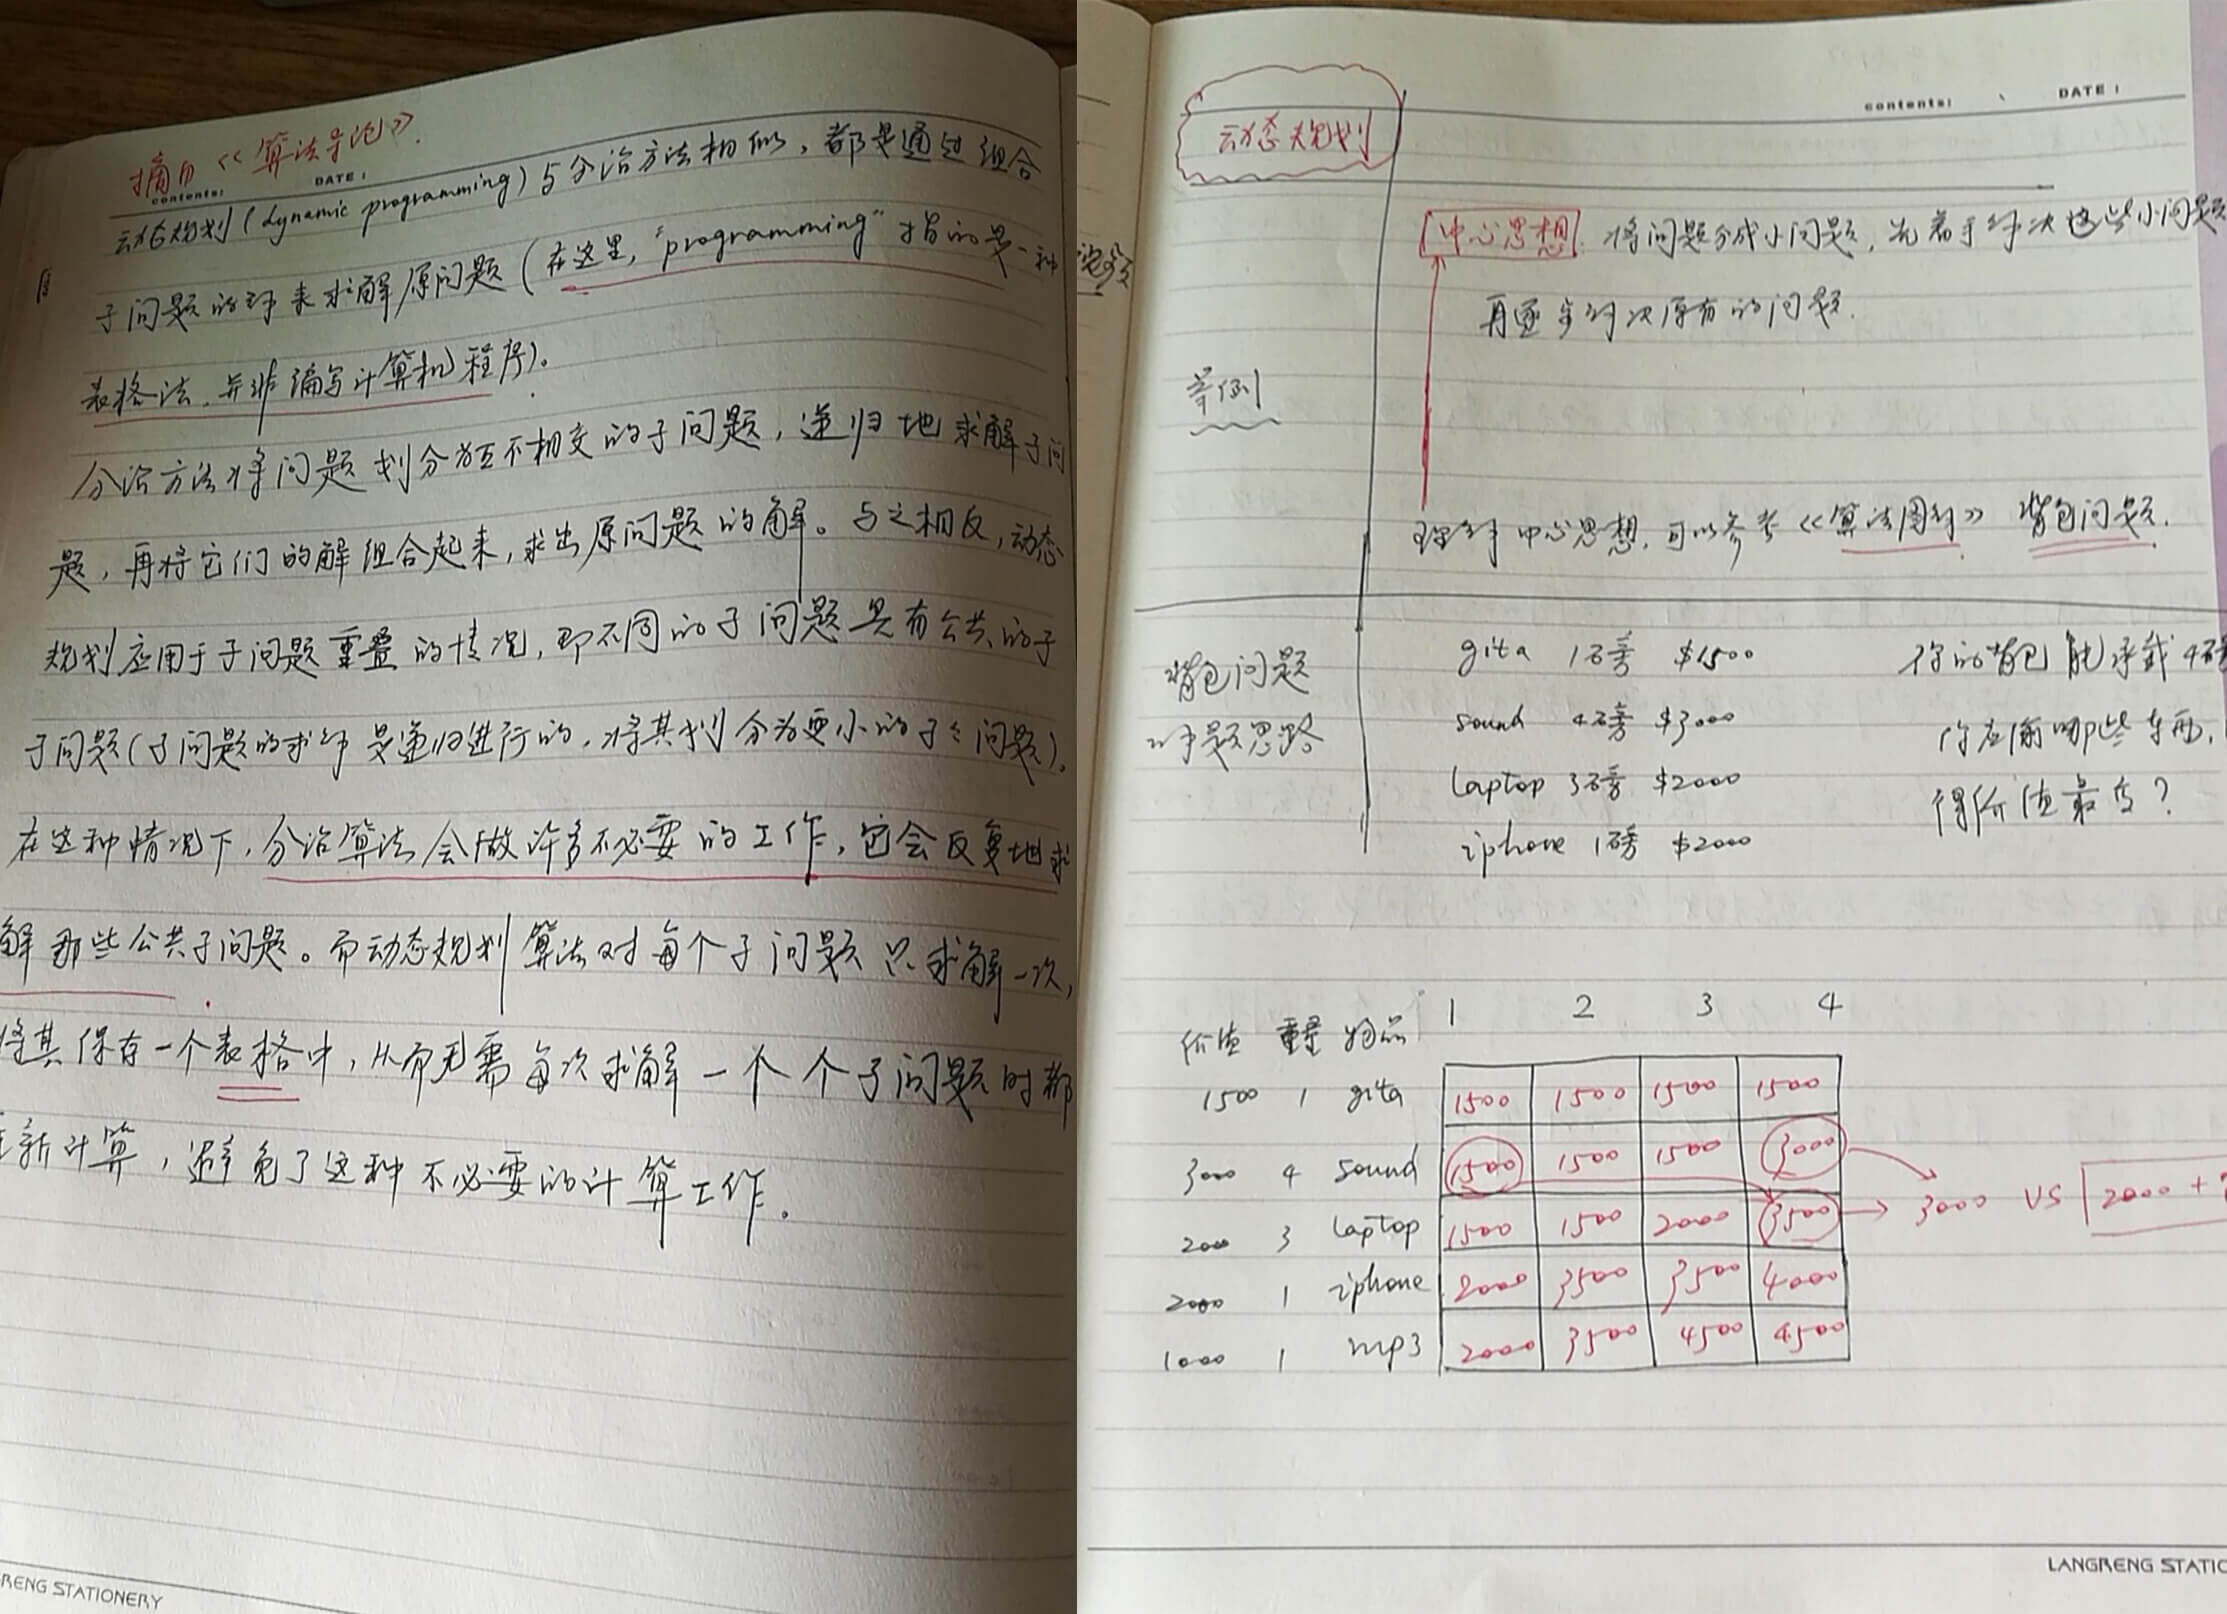 摘自《算法导论》.
contents: DATE:
动态规划(dynamic programming)与分治方法相似，都是通过组合
子问题的解来求解原问题(在这里，"programming"指的是一种
表格法，并非编写计算机程序)。
分治方法将问题划分为互不相交的子问题，递归地求解子问
题，再将它们的解组合起来，求出原问题的解。与之相反，动态
规划应用于子问题重叠的情况，即不同的子问题具有公共的子
子问题(子问题的求解是递归进行的，将其划分为更小的子子问题)。
在这种情况下，分治算法会做许多不必要的工作，它会反复地求
解那些公共子问题。而动态规划算法对每个子问题只求解一次，
将其保存一个表格中，从而无需每次求解一个个子问题时都
新计算，避免了这种不必要的计算工作。
RENG STATIONERY
contents: DATE:
动态规划
中心思想 将问题分成小问题，先着手解决这些小问题
再逐步解决原有的问题.
举例
理解中心思想，可以参考《算法图解》背包问题.
背包问题
解题思路
gita 1磅 $1500
sound 4磅 $3000
laptop 3磅 $2000
iphone 1磅 $2000
你的背包能承载4磅
你应偷哪些东西，
得价值最高？
价值 重量 物品 1 2 3 4
1500 1 gita 1500 1500 1500 1500
3000 4 sound 1500 1500 1500 3000
2000 3 laptop 1500 1500 2000 3500 3000 VS 2000 +
2000 1 iphone 2000 3500 3500 4000
1000 1 mp3 2000 3500 4500 4500
LANGRENG STATIO